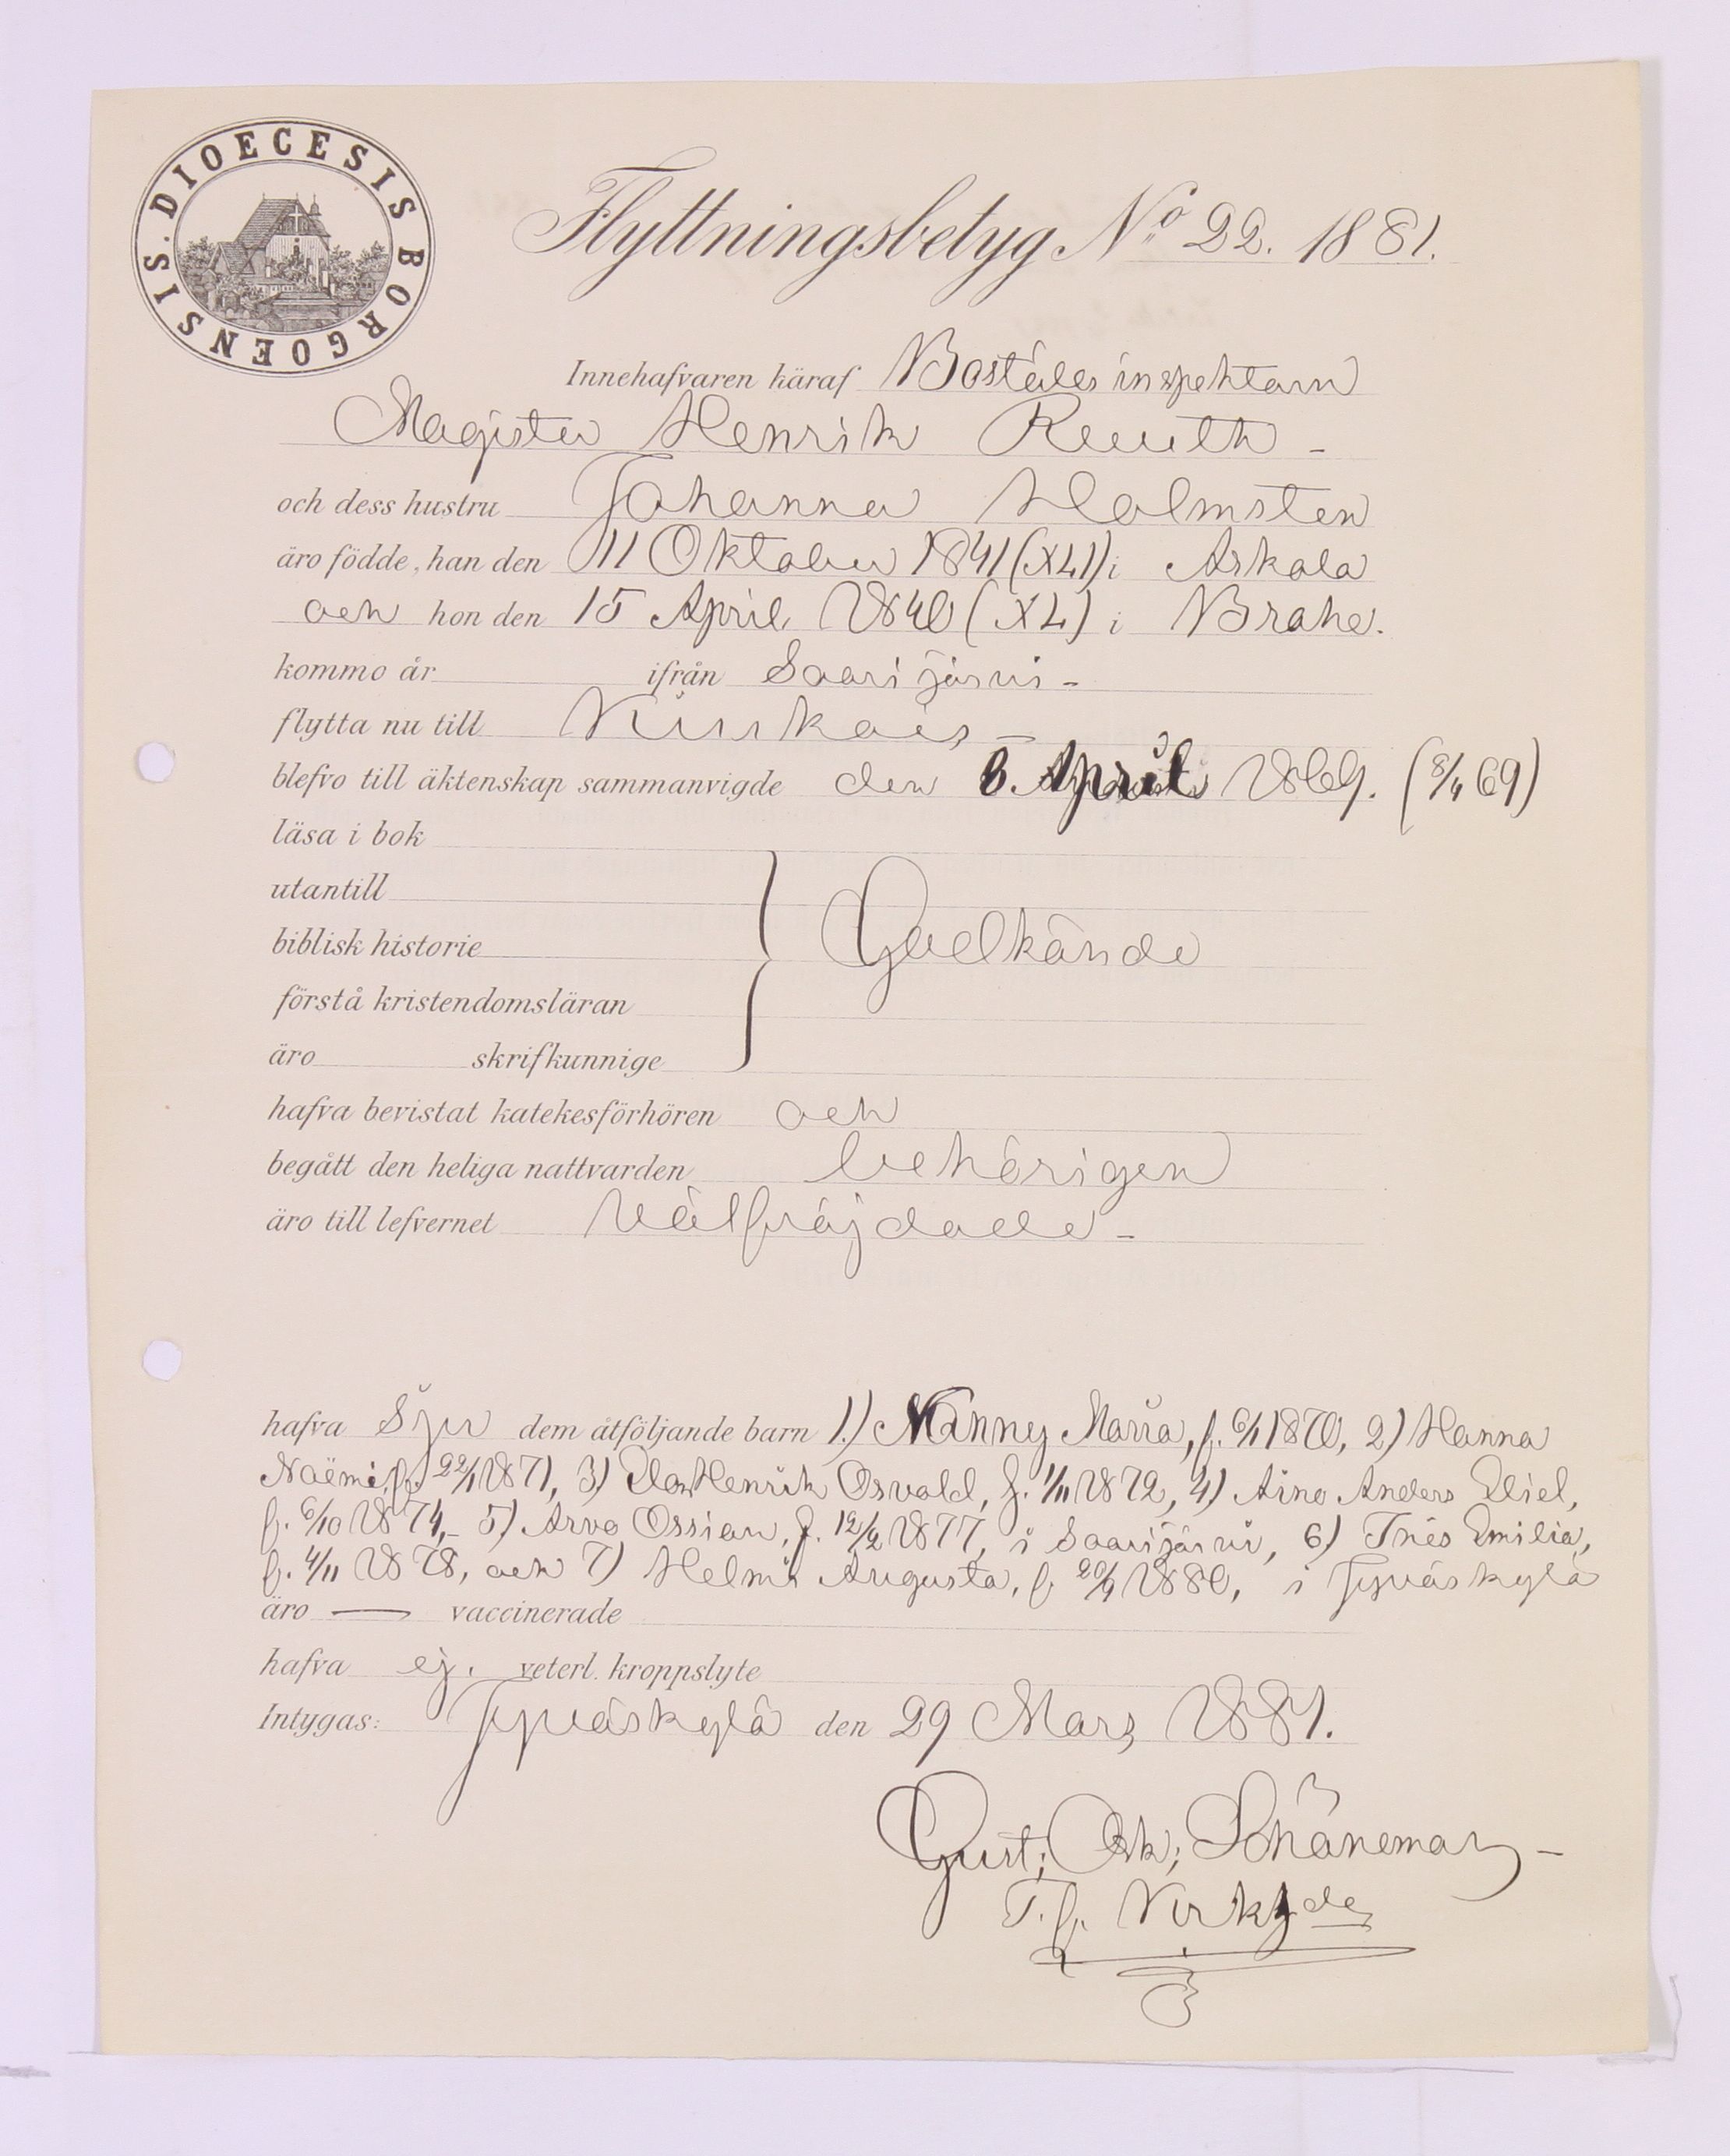 DIOECESIS BORGOENSIS.
Flyttningsbetyg No 22. 1881.
Innehafvaren häraf Boställes inspektorn
Magister Henrik Reuuth -
och dess hustru Johanna Holmsten
äro födde, han den 11 Oktober 1841 (XLI) i Askola
och hon den 15 April 1840 (XL) i Brahe.
kommo år ifrån Saarijärvi -
flytta nu till
blefvo till äktenskap sammanvigde den 8. April 1869. (8/4 69)
läsa i bok
utantill
biblisk historie Godkände
förstå kristendomsläran
äro skrifkunnige
hafva bevistat katekesförhören och
begått den heliga nattvarden behörigen
äro till lefvernet Välfräjdade -
hafva Sju dem åtföljande barn 1.) Nanny Maria, f. 6/1 1870, 2) Hanna
Naëmi, f. 22/1 1871, 3) Henrik Osvald, f. 1/11 1872, 4) Aino Anders Eliel,
f. 6/10 1874, - 5) Arvo Ossian, f. 12/2 1877, i Saarijärvi, 6) Inés Emilia,
f. 4/11 1878, och 7) Helmi Augusta, f 20/4 1880, i Jyväskylä
äro — vaccinerade
hafva ej. veterl. kroppslyte
Intygas: Jyväskylä den 29 Mars 1881.
Gust; Osk; Schöneman -
T. f. Kirkhde